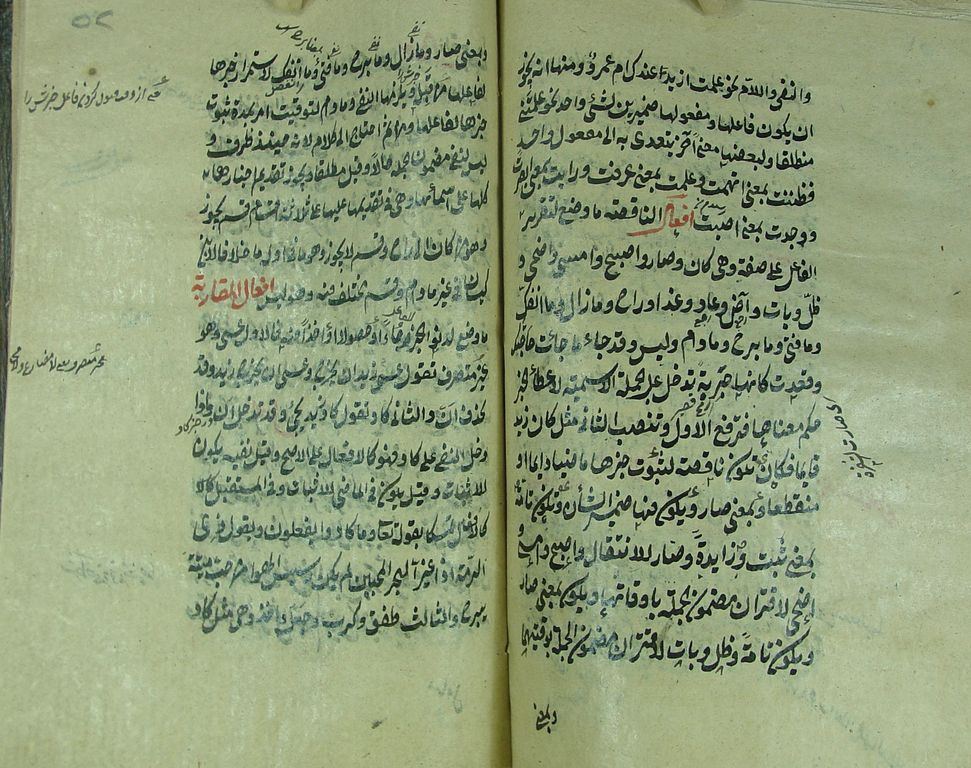 والنفي واللام نحو علمت ازيد عندك ام عمرو ومنها انه يجوز
ان يكون فاعلها ومفعولها ضميرين لشئ واحد نحو علمتني
منطلقا ولبعضها معنى آخر يتعدى به الى مفعول واحد
فظننت بمعنى اتهمت وعلمت بمعنى عرفت ورايت بمعنى ابصرت
ووجدت بمعنى اصبت افعال الناقصة ما وضع لتقرير
الفاعل على صفة وهى كان وصار واصبح وامسى واضحى و
ظل وبات وآض وعاد وغدا وراح ومازال وما انفك
وما فتئ وما برح وما دام وليس وقد جاء ما جائت حاجتك
وقعدت كانها حربة تدخل على الجملة الاسمية لاعطاء الخبر
حكم معناها فترفع الاول وتنصب الثانى مثل كان زيد
قايما فكان تكون ناقصة لثبوت خبرها ماضيا دايما او
منقطعا وبمعنى صار ويكون فيها ضمير الشأن وتكون تامة
بمعنى ثبت وزايدة وصار للانتقال واصبح وامسى و
اضحى لاقتران مضمون الجملة باوقاتها ويكون بمعنى صار
ويكون تامة وظل وبات لاقتران مضمون الجملة بوقتيهما
وبمعنى
وبمعنى صار ومازال وما برح وما فتئ وما انفك لاستمرار خبرها
لفاعلها مذ قبله ويلزمها النفى وما دام لتوقيت امر بمدة ثبوت
خبرها لفاعلها ومن ثم احتاج الى كلام لانه حينئذ ظرف و
ليس لنفى مضمون الجملة حالا وقيل مطلقا ويجوز تقديم اخبارها
كلها على اسمائها وهى فى تقديمها عليها على ثلاثة اقسام قسم يجوز
وهو من كان الى راح وقسم لا يجوز وهو ما فى اوله ما خلافا لابن
كيسان فى غير ما دام وقسم مختلف فيه وهو ليس افعال المقاربة
ما وضع لدنو الخبر رجاء او حصولا او اخذا فيه فالاول عسى وهو
غير متصرف تقول عسى زيد ان يخرج وعسى ان يخرج زيد وقد
يحذف ان والثانى كاد وتقول كاد زيد يجئ وقد تدخل ان واذا
دخل النفى على كاد فهو كالافعال على الاصح وقيل نفيه يكون
للاثبات وقيل يكون فى الماضى للاثبات وفى المستقبل كالا
كالافعال تمسكا بقوله تعالى وما كادوا يفعلون وبقول ذى
الرمة اذا غير الهجر المحبين لم يكد رسيس الهوى من حب مية
يبرح والثالث طفق وكرب وجعل واخذ وهى مثل كاد